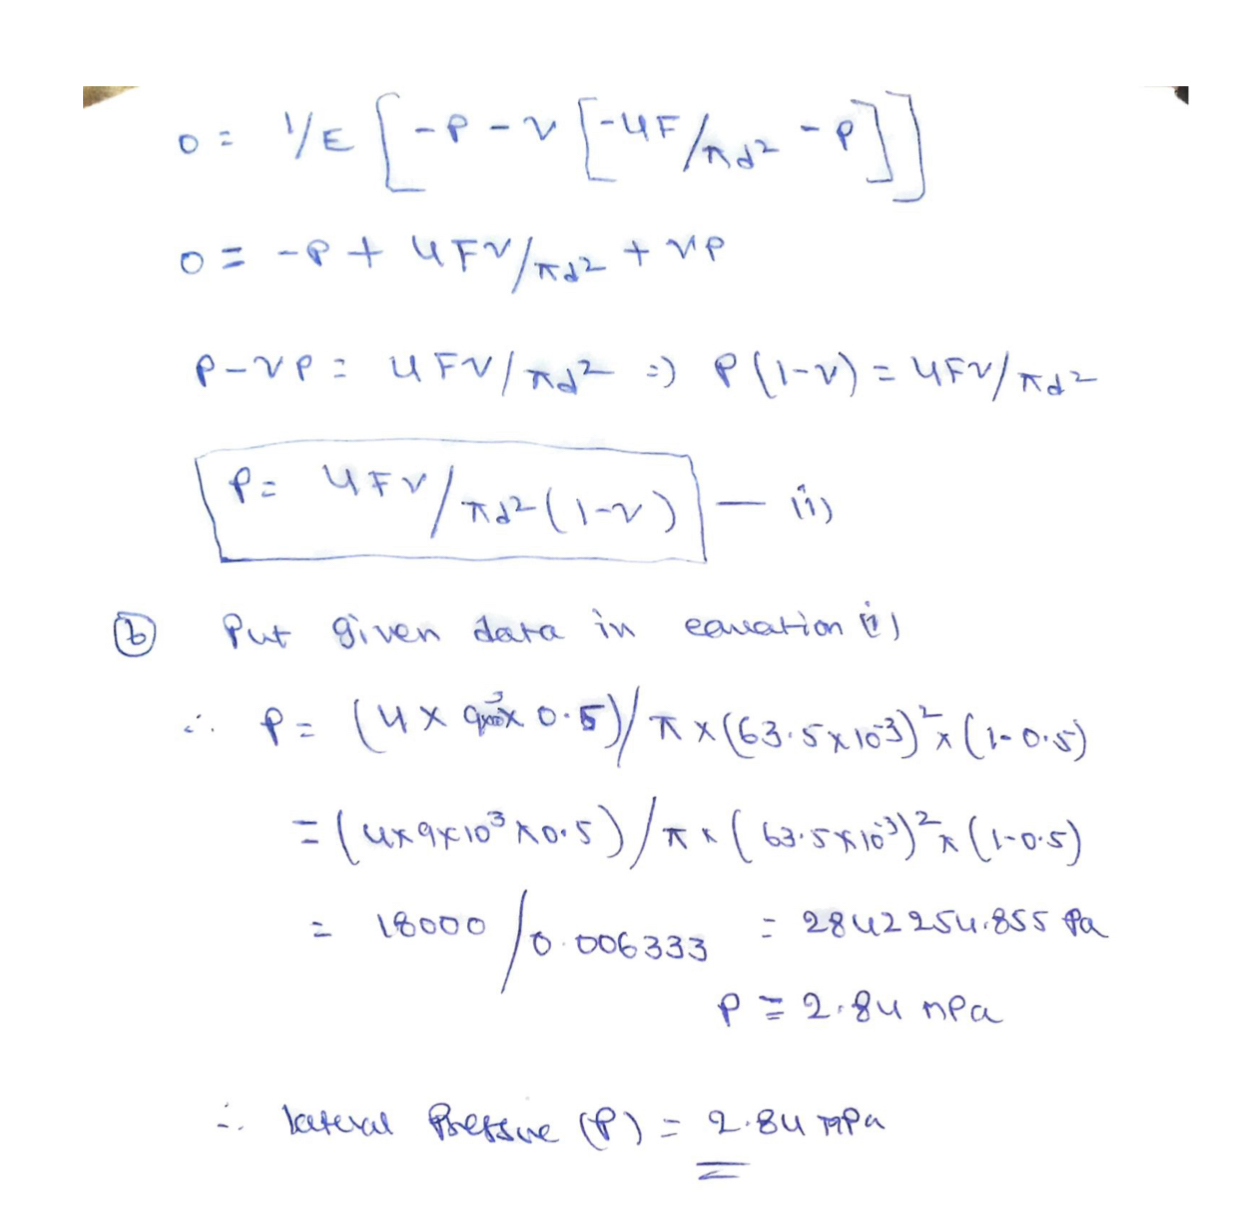 0 = 1/E [-P - ν [-4F/πd² - P]]
0 = -P + 4Fν/πd² + νP
P-νP = 4Fν/πd² => P(1-ν) = 4Fν/πd²
P = 4Fν/πd²(1-ν) — (i)
(b) Put given data in equation (i)
∴ P = (4 × 9×10³× 0.5)/π×(63.5×10⁻³)²×(1-0.5)
= (4×9×10³×0.5)/π×(63.5×10⁻³)²×(1-0.5)
= 18000/0.006333 = 2842254.855 Pa
P = 2.84 MPa
∴ lateral Pressure (P) = 2.84 MPa